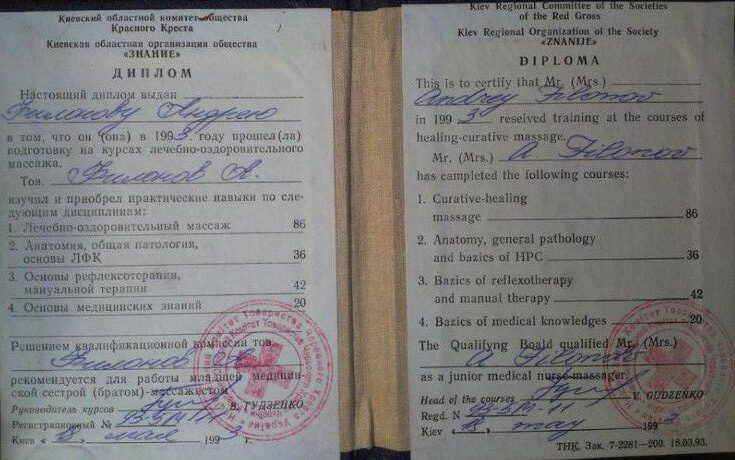 Киевский областной комитет общества
Красного Креста
Киевская областная организация общества
«ЗНАНИЕ»
ДИПЛОМ
Настоящий диплом выдан
Филонову Андрею
в том, что он (она) в 1993 году прошел(ла)
подготовку на курсах лечебно-оздоровительного
массажа.
Тов. Филонов А.
изучил и приобрел практические навыки по сле-
дующим дисциплинам:
1. Лечебно-оздоровительный массаж 86
2. Анатомия, общая патология,
основы ЛФК 36
3. Основы рефлексотерапии,
мануальной терапии 42
4. Основы медицинских знаний 20
Решением квалификационной комиссии тов.
Филонов А.
рекомендуется для работы младшей медицин-
ской сестрой (братом)-массажистом
Руководитель курсов В. ГУДЗЕНКО
Регистрационный № 93-5/М-11
Киев «18» мая 1993 г.
Kiev Regional Committee of the Societies
of the Red Gross
Kiev Regional Organization of the Society
«ZNANIJE»
DIPLOMA
This is to certify that Mr. (Mrs.)
Andrey Filonov
in 1993 reseived training at the courses of
healing-curative massage.
Mr. (Mrs.) A Filonov
has completed the following courses:
1. Curative-healing
massage 86
2. Anatomy, general pathology
and bazics of HPC 36
3. Bazics of reflexotherapy
and manual therapy 42
4. Bazics of medical knowledges 20
The Qualifyng Boald qualified Mr. (Mrs.)
A Filonov
as a junior medical nurse-massager.
Head of the courses V. GUDZENKO
Regd. N 93-5/M-11
Kiev «18» may 1993
ТНК. Зак. 7-2281—200. 18.03.93.